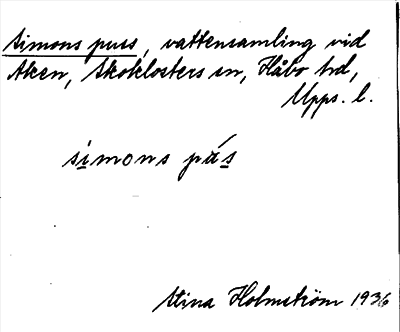 Simons puss, vattensamling vid
Aken, Skoklosters sn, Håbo hd,
Upps. l.
simons pús
Stina Holmström 1936